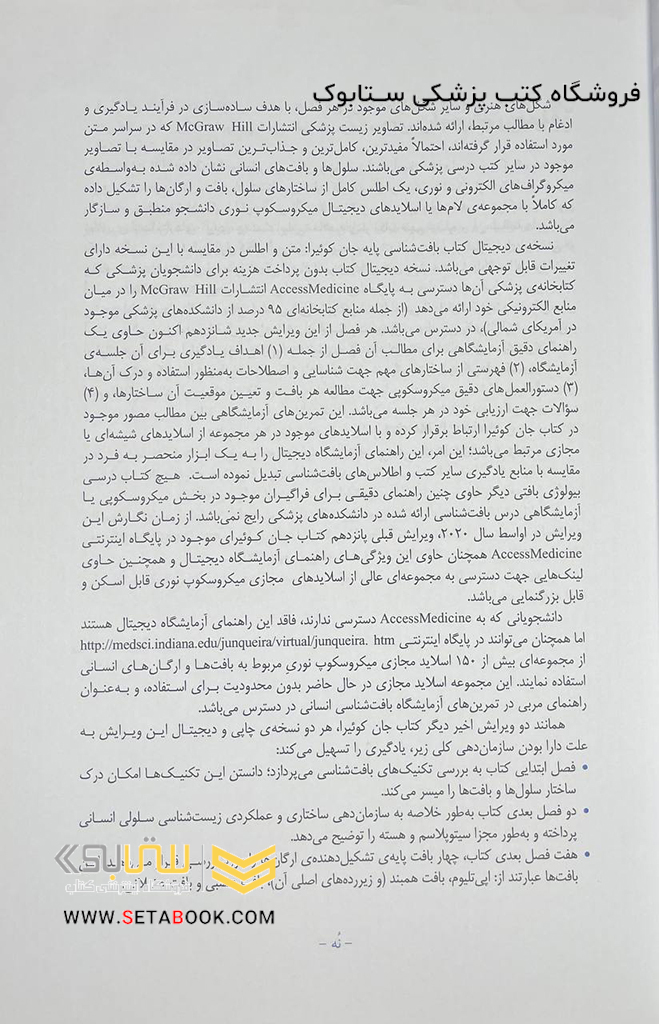 فروشگاه کتب پزشکی ستابوک
شکل‌های هنری و سایر شکل‌های موجود در هر فصل، با هدف ساده‌سازی در فرآیند یادگیری و
ادغام با مطالب مرتبط، ارائه شده‌اند. تصاویر زیست پزشکی انتشارات McGraw Hill که در سراسر متن
مورد استفاده قرار گرفته‌اند، احتمالاً مفیدترین، کامل‌ترین و جذاب‌ترین تصاویر در مقایسه با تصاویر
موجود در سایر کتب درسی پزشکی می‌باشند. سلول‌ها و بافت‌های انسانی نشان داده شده به‌واسطه‌ی
میکروگراف‌های الکترونی و نوری، یک اطلس کامل از ساختارهای سلول، بافت و ارگان‌ها را تشکیل داده
که کاملاً با مجموعه‌ی لام‌ها یا اسلایدهای دیجیتال میکروسکوپ نوری دانشجو منطبق و سازگار
می‌باشد.
نسخه‌ی دیجیتال کتاب بافت‌شناسی پایه جان کوئیرا: متن و اطلس در مقایسه با این نسخه دارای
تغییرات قابل توجهی می‌باشد. نسخه دیجیتال کتاب بدون پرداخت هزینه برای دانشجویان پزشکی که
کتابخانه‌ی پزشکی آن‌ها دسترسی به پایگاه AccessMedicine انتشارات McGraw Hill را در میان
منابع الکترونیکی خود ارائه می‌دهد (از جمله منابع کتابخانه‌ای ۹۵ درصد از دانشکده‌های پزشکی موجود
در آمریکای شمالی)، در دسترس می‌باشد. هر فصل از این ویرایش جدید شانزدهم اکنون حاوی یک
راهنمای دقیق آزمایشگاهی برای مطالب آن فصل از جمله (۱) اهداف یادگیری برای آن جلسه‌ی
آزمایشگاه، (۲) فهرستی از ساختارهای مهم جهت شناسایی و اصطلاحات به‌منظور استفاده و درک آن‌ها،
(۳) دستورالعمل‌های دقیق میکروسکوپی جهت مطالعه هر بافت و تعیین موقعیت آن ساختارها، و (۴)
سؤالات جهت ارزیابی خود در هر جلسه می‌باشد. این تمرین‌های آزمایشگاهی بین مطالب مصور موجود
در کتاب جان کوئیرا ارتباط برقرار کرده و با اسلایدهای موجود در هر مجموعه از اسلایدهای شیشه‌ای یا
مجازی مرتبط می‌باشد؛ این امر، این راهنمای آزمایشگاه دیجیتال را به یک ابزار منحصر به فرد در
مقایسه با منابع یادگیری سایر کتب و اطلاس‌های بافت‌شناسی تبدیل نموده است. هیچ کتاب درسی
بیولوژی بافتی دیگر حاوی چنین راهنمای دقیقی برای فراگیران موجود در بخش میکروسکوپی یا
آزمایشگاهی درس بافت‌شناسی ارائه شده در دانشکده‌های پزشکی رایج نمی‌باشد. از زمان نگارش این
ویرایش در اواسط سال ۲۰۲۰، ویرایش قبلی پانزدهم کتاب جان کوئیرای موجود در پایگاه اینترنتی
AccessMedicine همچنان حاوی این ویژگی‌های راهنمای آزمایشگاه دیجیتال و همچنین حاوی
لینک‌هایی جهت دسترسی به مجموعه‌ای عالی از اسلایدهای مجازی میکروسکوپ نوری قابل اسکن و
قابل بزرگنمایی می‌باشد.
دانشجویانی که به AccessMedicine دسترسی ندارند، فاقد این راهنمای آزمایشگاه دیجیتال هستند
اما همچنان می‌توانند در پایگاه اینترنتی http://medsci.indiana.edu/junqueira/virtual/junqueira. htm
از مجموعه‌ای بیش از ۱۵۰ اسلاید مجازی میکروسکوپ نوریِ مربوط به بافت‌ها و ارگان‌های انسانی
استفاده نمایند. این مجموعه اسلاید مجازی در حال حاضر بدون محدودیت برای استفاده، و به‌عنوان
راهنمای مربی در تمرین‌های آزمایشگاه بافت‌شناسی انسانی در دسترس می‌باشد.
همانند دو ویرایش اخیر دیگر کتاب جان کوئیرا، هر دو نسخه‌ی چاپی و دیجیتال این ویرایش به
علت دارا بودن سازمان‌دهی کلی زیر، یادگیری را تسهیل می‌کند:
• فصل ابتدایی کتاب به بررسی تکنیک‌های بافت‌شناسی می‌پردازد؛ دانستن این تکنیک‌ها امکان درک
ساختار سلول‌ها و بافت‌ها را میسر می‌کند.
• دو فصل بعدی کتاب به‌طور خلاصه به سازمان‌دهی ساختاری و عملکردی زیست‌شناسی سلولی انسانی
پرداخته و به‌طور مجزا سیتوپلاسم و هسته را توضیح می‌دهد.
• هفت فصل بعدی کتاب، چهار بافت پایه‌ی تشکیل‌دهنده‌ی
بافت‌ها عبارتند از: اپی‌تلیوم، بافت همبند (و زیررده‌های اصلی آن)
ستابوک
فروشگاه اینترنتی کتاب
WWW.SETABOOK.COM
- نُه -